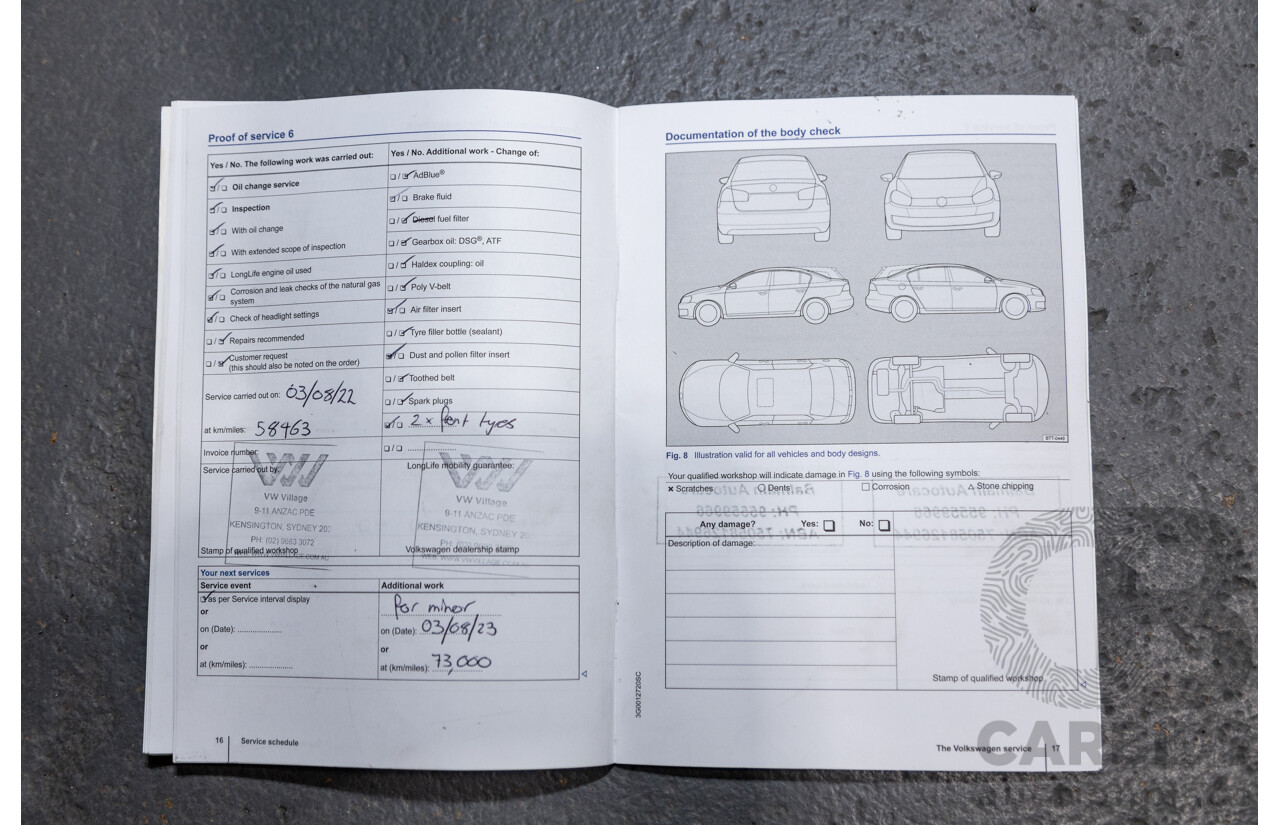 Proof of service 6
Yes / No. The following work was carried out:
Oil change service
Inspection
With oil change
With extended scope of inspection
LongLife engine oil used
Corrosion and leak checks of the natural gas
system
Check of headlight settings
Repairs recommended
Customer request
(this should also be noted on the order)
Service carried out on: 03/08/22
at km/miles: 58463
Invoice number:
Service carried out by:
VW
VW Village
9-11 ANZAC PDE
KENSINGTON, SYDNEY
PH: (02) 9663 3072
Stamp of qualified workshop
Yes / No. Additional work - Change of:
AdBlue®
Brake fluid
Diesel fuel filter
Gearbox oil: DSG®, ATF
Haldex coupling: oil
Poly V-belt
Air filter insert
Tyre filler bottle (sealant)
Dust and pollen filter insert
Toothed belt
Spark plugs
2 x front tyes
LongLife mobility guarantee:
VW
VW Village
9-11 ANZAC PDE
KENSINGTON, SYDNEY
Volkswagen dealership stamp
Your next services
Service event
as per Service interval display
or
on (Date): ....................
or
at (km/miles): ....................
Additional work
for minor
on (Date): 03/08/23
or
at (km/miles): 73,000
16 Service schedule
Documentation of the body check
BTT-0449
Fig. 8 Illustration valid for all vehicles and body designs.
Your qualified workshop will indicate damage in Fig. 8 using the following symbols:
x Scratches O Dents □ Corrosion △ Stone chipping
Any damage? Yes: □ No: □
Description of damage:
Stamp of qualified workshop
3G0012720SC
The Volkswagen service 17